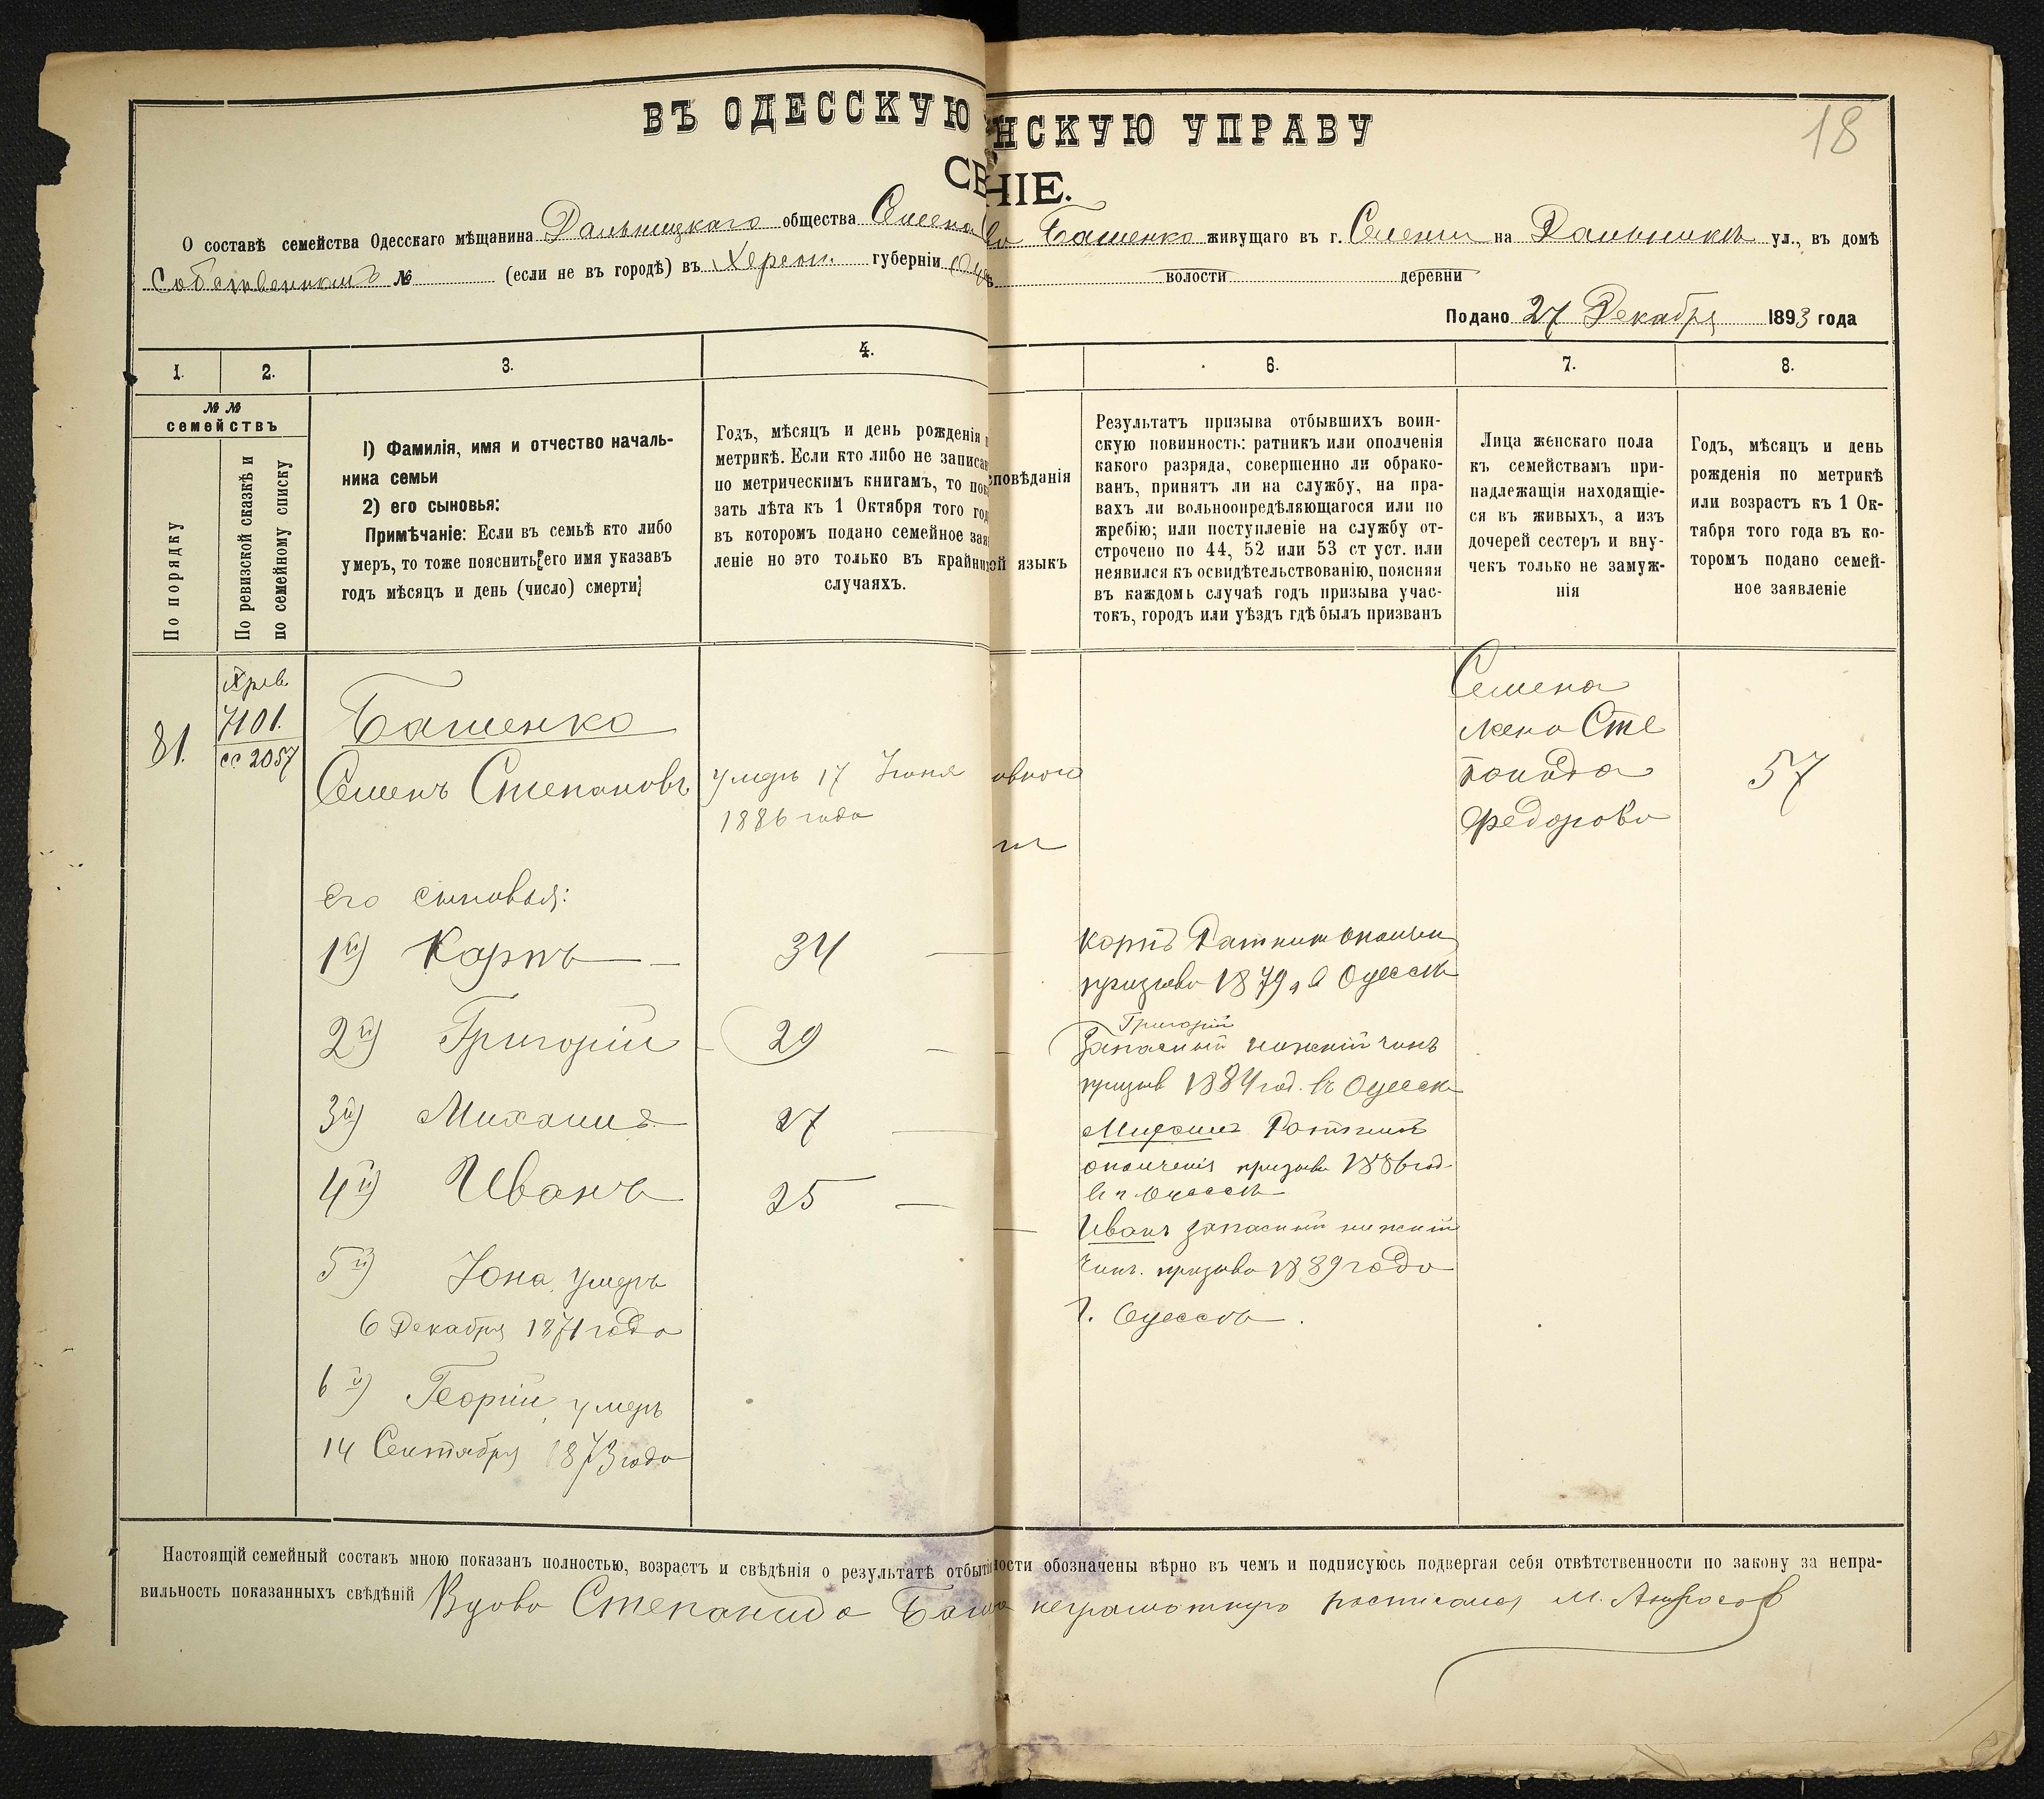 18
ВЪ ОДЕССКУЮ НСКУЮ УПРАВУ
СВ НІЕ.
О составѣ семейства Одесскаго мѣщанина Дальницкаго общества Семена Башенко живущаго въ г. на Дальникѣ ул., въ домѣ
Собственномъ № (если не въ городѣ) въ Херсон. губерніи волости деревни
Подано 27 Декабря 1893 года
1. 2. 3. 4. 6. 7. 8.
№ №
семействъ
По порядку
По ревизской сказкѣ и
по семейному списку
1) Фамилія, имя и отчество началь-
ника семьи
2) его сыновья:
Примѣчаніе: Если въ семьѣ кто либо
умеръ, то тоже пояснить его имя указавъ
годъ мѣсяцъ и день (число) смерти
Годъ, мѣсяцъ и день рожденія п
метрикѣ. Если кто либо не записан
по метрическимъ книгамъ, то пока
зать лѣта къ 1 Октября того год
въ которомъ подано семейное зая
леніе но это только въ крайни
случаяхъ.
сповѣданія
ой языкъ
Результатъ призыва отбывшихъ воин-
скую повинность: ратникъ или ополченія
какого разряда, совершенно ли обрако-
ванъ, принятъ ли на службу, на пра-
вахъ ли вольноопредѣляющагося или по
жребію; или поступленіе на службу от-
строчено по 44, 52 или 53 ст уст. или
неявился къ освидѣтельствованію, поясняя
въ каждомъ случаѣ годъ призыва учас-
токъ, городъ или уѣздъ гдѣ былъ призванъ
Лица женскаго пола
къ семействамъ при-
надлежащія находящіе-
ся въ живыхъ, а изъ
дочерей сестеръ и вну-
чекъ только не замуж-
нія
Годъ, мѣсяцъ и день
рожденія по метрикѣ
или возрастъ къ 1 Ок-
тября того года въ ко-
торомъ подано семей-
ное заявленіе
81.
7101.
сс 2057
Башенко
Семенъ Степановъ
умеръ 17 Іюня
1886 года
Семена
жена Сте
панида
Федорова
57
его сыновья:
1й) Карпъ 34
Карпъ Ратник ополчен
призыва 1879 г в Одессѣ
2й) Григорій 29
Григорій
Запасный нижній чинъ
призыв 1884 год. въ Одессѣ
3й) Михаилъ 27
Михаилъ Ратникъ
ополченія призыва 1886 год
въ г. Одессѣ
4й) Иванъ 25
Иванъ запасный нижній
чинъ. призыва 1889 года
г. Одесса.
5й) Іона умеръ
6 Декабря 1871 года
6й) Георгій, умеръ
14 Сентября 1873 года
Настоящій семейный составъ мною показанъ полностью, возрастъ и свѣдѣнія о результатѣ отбыті ности обозначены вѣрно въ чемъ и подписуюсь подвергая себя отвѣтственности по закону за непра-
вильность показанныхъ свѣдѣній Вдова Степанида Баш неграмотную росписался М.